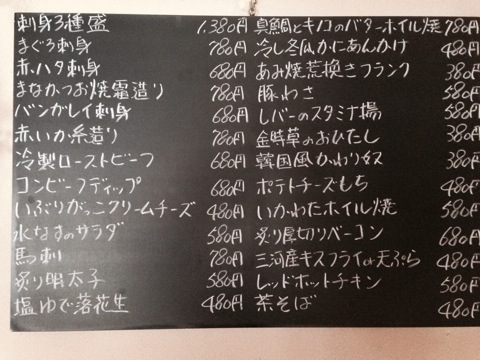 刺身3種盛 1,380円
まぐろ刺身 780円
赤ハタ刺身 680円
まなかつお焼霜造り 780円
バンガレイ刺身 680円
赤いか糸造り 780円
冷製ローストビーフ 680円
コンビーフディップ 680円
いぶりがっこクリームチーズ 480円
水なすのサラダ 580円
馬刺 780円
炙り明太子 580円
塩ゆで落花生 480円
真鯛とキノコのバターホイル焼 780円
冷し冬瓜かにあんかけ 480円
あみ焼荒挽きフランク 380円
豚わさ 580円
レバーのスタミナ揚 580円
金時草のおひたし 380円
韓国風かわり奴 380円
ポテトチーズもち 480円
いかわたホイル焼 580円
炙り厚切りベーコン 680円
三河産キスフライor天ぷら 480円
レッドホットチキン 580円
茶そば 480円